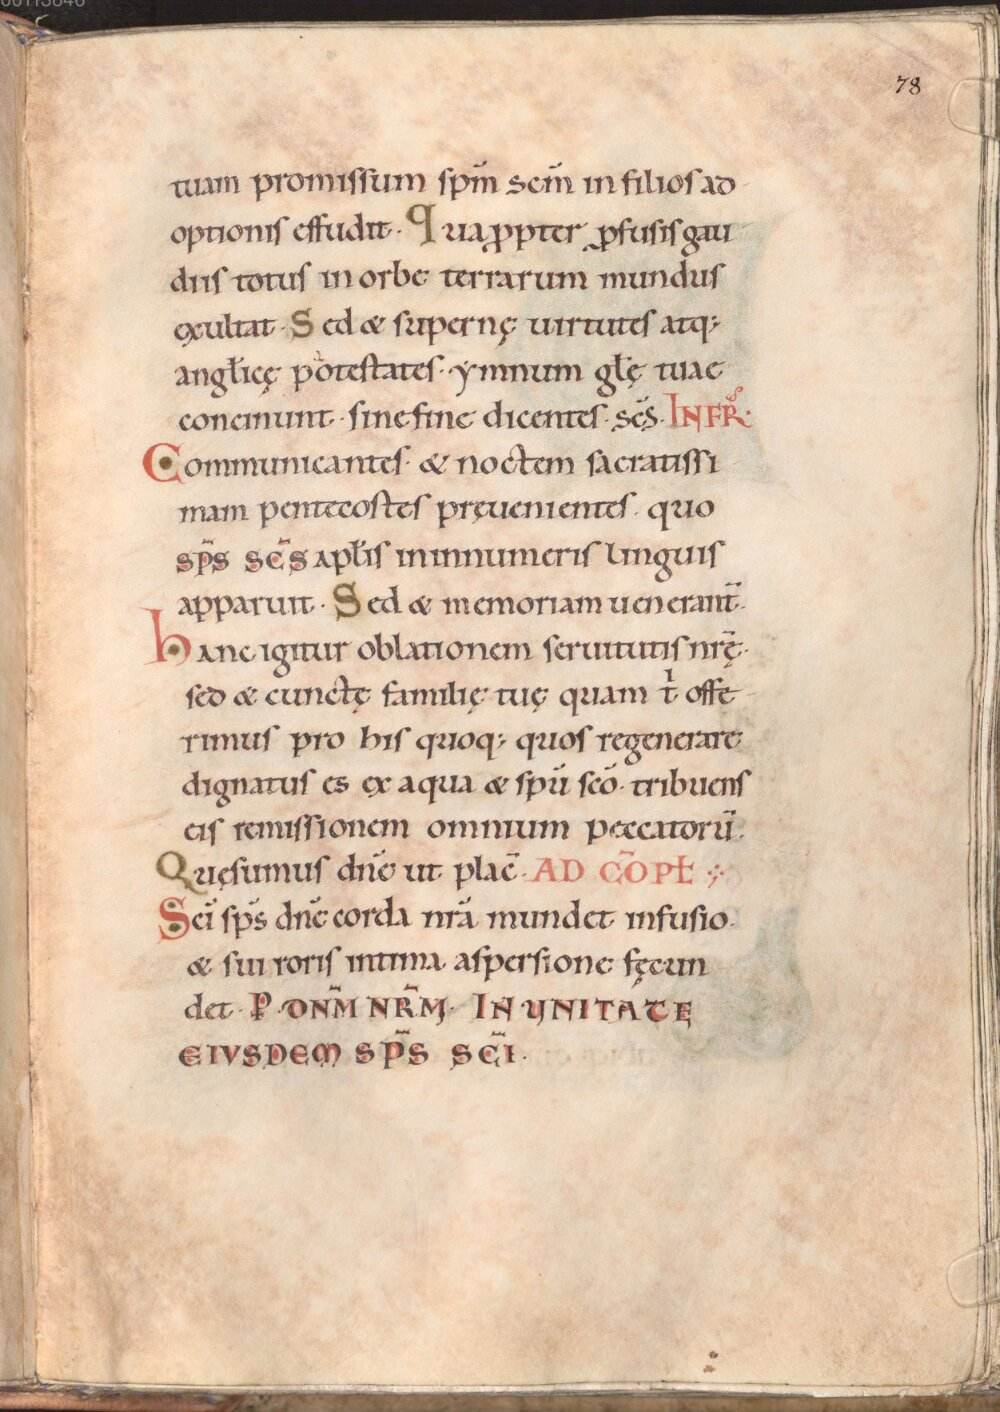 00113846
78
tuam promissum sp̅m sc̅m in filios ad
optionis effudit. Quapp̱ter ꝓfusis gau
diis totus in orbe terrarum mundus
exultat. Sed & supernę uirtutes atq;
angl̅icę potestates. ymnum gl̅ę tuae
concinunt. sine fine dicentes. sc̅s. INFR̅.
Communicantes. & noctem sacratissi
mam pentecostes pręuenientes. quo
sp̅s sc̅s apl̅is in innumeris linguis
apparuit. Sed & memoriam uenerant̅.
hanc igitur oblationem seruitutis nr̅ę.
sed & cunctę familię tuę quam t̅ offe
rimus pro his quoq; quos regenerare
dignatus es ex aqua & sp̅u sc̅o. tribuens
eis remissionem omnium peccatoru̅.
Quęsumus dn̅e ut plac̅. AD CO̅PL̅
Sc̅i sp̅s dn̅e corda nr̅a mundet infusio.
& sui roris intima aspersione fęcun
det. P. DN̅M NR̅M. IN UNITATE
EIUSDEM SP̅S SC̅I.